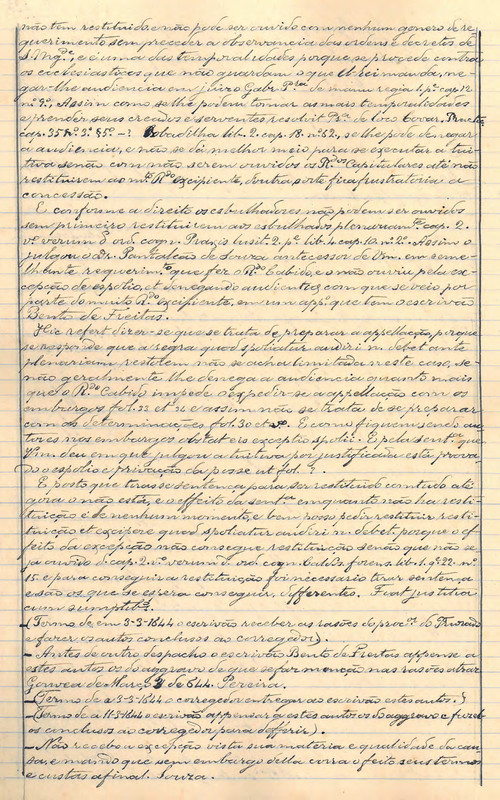 não tem restituido, e não pode ser ouvido com nenhum genero de re-
querimento sem preceder a observancia das ordens e decretos de
S. Mg.de, e é uma das temporalidades porque se procede contra
os ecclesiasticos que não guardam o que El-rei manda, ne-
gar-lhe audiencia em juizo Gabr. P.ra de manu regia 1.p. cap. 12
n.º 9.º, Assim como se lhe podem tomar as mais temporalidades
e prender seus creados e serventes
cap. 35 n.º 3.º 85 -? Bobadilha lib. 2. cap. 18. n.º 62, se lhe pode denegar
a audiencia, e não se dá melhor meio para se executar a tui-
tiva senão com não serem ouvidos os R.dos Capitulares até não
restituirem ao m.to R.do excipiente, doutra sorte fica frustratoria a
concessão.
E conforme a direito os esbulhadores não podem ser ouvidos
sem primeiro restituirem aos esbulhados plenariam.te cap. 2.
v.º verum d. ord. cogn. lusit. 2. p. lib. 4. cap. 10. n.º 2.º Assim o
julgou o Dr. Pantalcão de Souza antecessor de Vm. em seme-
lhante requerim.to que fez o R.do Cabido, e o não ouviu pela ex-
cepção de espolio, et denegando audientia, com que se veio por
parte do muito R.do excipiente, em um app.o que tem o escrivão
Bento de Freitas.
Hic refert dizer-se que se trata de preparar a appellação, porque
se responde que a regra quod spoliatur audiri n. debet ante
plenariam restol em não se acha limitada neste caso, se-
não geralmente lhe denega a audiencia quanto mais
que o R.do Cabido impede o expedir-se a appellação com os
embargos fol. 22 et 32 e assim não se trata de se preparar
com as determinações fol. 30 et E como fiquem sendo au-
tores nos embargos obstat eis exceptio spolii. E pela sent.ça que
Vm. deu em que julgou a tuitiva por justificada está prova-
do o espolio e privação da posse ut fol. ?.
E posto que tirasse sentença para ser restituido com tudo até
gora o não está, e o effeito da sent.ça emquanto não ha resti-
tuição é de nenhum momento, e bem posso pedir restituir resti-
tuição et excipere quod spoliatur audiri n. debet. porque o ef-
feito da excepção não consegue restituição senão que não se-
ja ouvido d. cap. 2. n.º verum d. ord. cogn. Caldas forens. lib. 1. q. 22. n.º
15. e para conseguir a restituição foi necessario tirar sentença
e são os que se espera conseguir differentes. Fiat justitia
cum sumptib.s
- (Termo de em 3-3-1644 o escrivão receber as rasões do proc.or do Priorado
e fazer os autos conclusos ao corregedor).
- Antes de outro despacho o escrivão Bento de Freitas appense a
estes autos os do aggravo de que se faz menção nas rasões atraz
Gouvea de Março 3 de 644. Pereira.
- (Termo de a 3-3-1644 o corregedor entregar ao escrivão estes autos.)
- (Termo de a 11-3-1644 o escrivão appensar a estes autos os do aggravo e fazel-
os conclusos ao corregedor para deferir).
- Não recebo a excepção vista sua materia e qualidade da cau-
sa, e mando que sem embargo della corra o feito seus termos
e custas afinal. Souza.